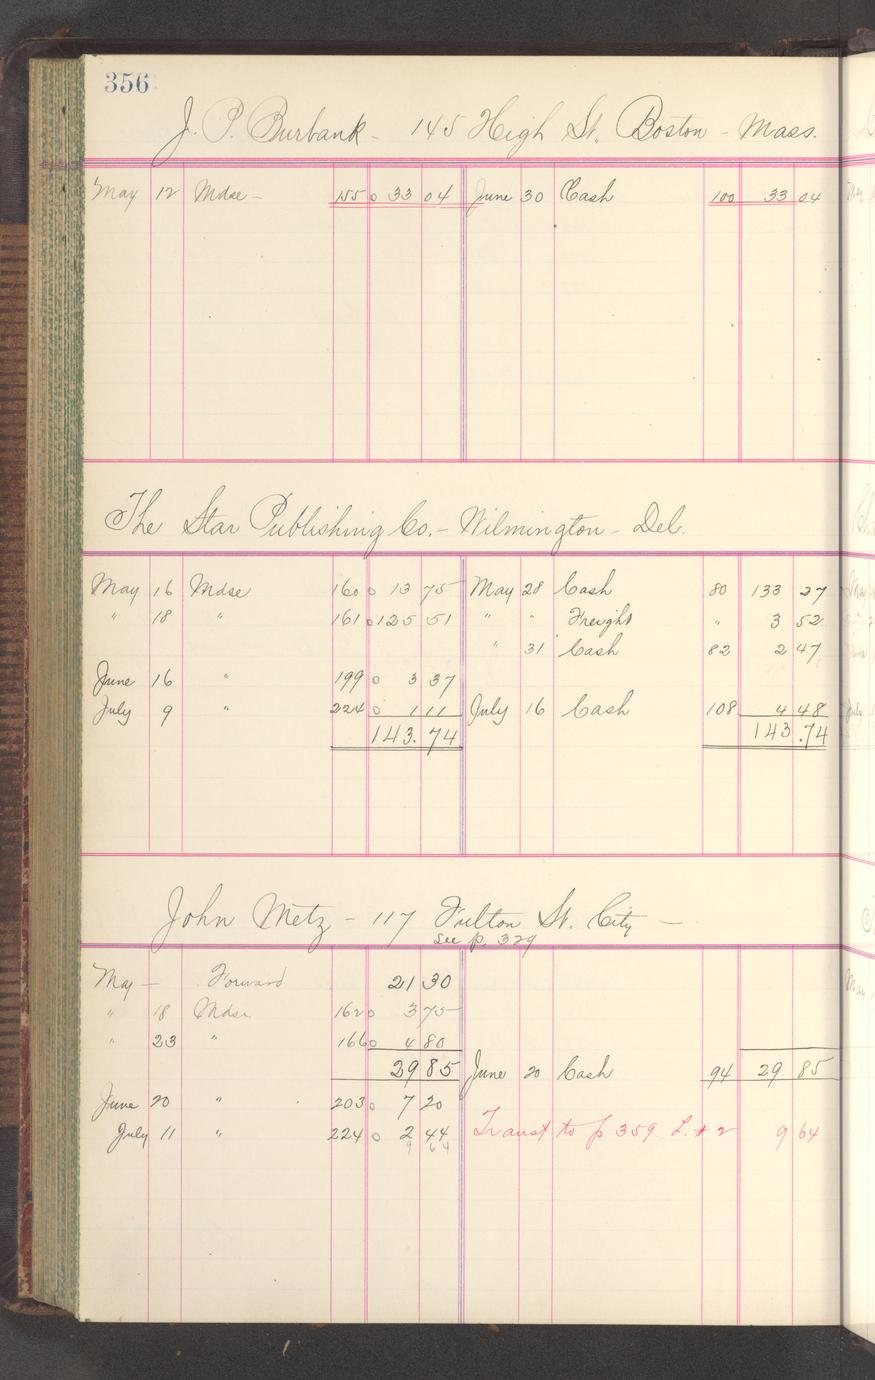 356
J. P. Burbank - 145 High St. Boston - Mass.
May 12 Mdse - 155 0 33 04 June 30 Cash 100 33 04
The Star Publishing Co. - Wilmington - Del.
May 16 Mdse 160 0 13 75 May 28 Cash 80 133 27
" 18 " 161 0 125 51 " " Freight " 3 52
" 31 Cash 82 2 47
June 16 " 199 0 3 37
July 9 " 224 0 1 11 July 16 Cash 108 4 48
143.74 143.74
John Metz - 117 Fulton St. City -
see p. 329
May - Forward 21 30
" 18 Mdse 162 0 3 75
" 23 " 166 0 4 80
29 85 June 20 Cash 94 29 85
June 20 " 203 0 7 20
July 11 " 224 0 2 44 Transf to p 359 L. # 2 9 64
9 64